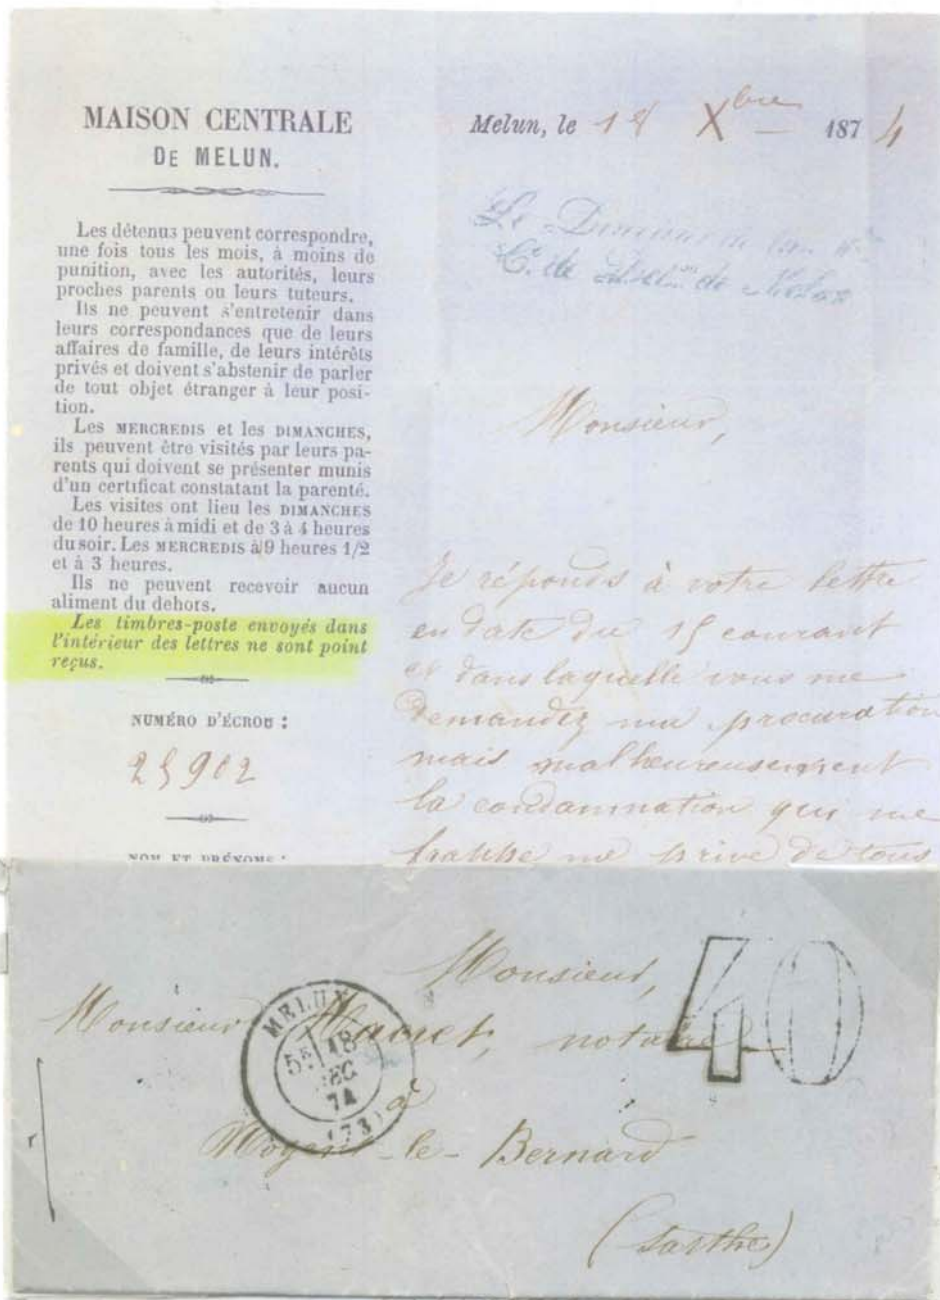 MAISON CENTRALE
DE MELUN.
Les détenus peuvent correspondre,
une fois tous les mois, à moins de
punition, avec les autorités, leurs
proches parents ou leurs tuteurs.
Ils ne peuvent s'entretenir dans
leurs correspondances que de leurs
affaires de famille, de leurs intérêts
privés et doivent s'abstenir de parler
de tout objet étranger à leur posi-
tion.
Les MERCREDIS et les DIMANCHES,
ils peuvent être visités par leurs pa-
rents qui doivent se présenter munis
d'un certificat constatant la parenté.
Les visites ont lieu les DIMANCHES
de 10 heures à midi et de 3 à 4 heures
du soir. Les MERCREDIS à 9 heures 1/2
et à 3 heures.
Ils ne peuvent recevoir aucun
aliment du dehors.
Les timbres-poste envoyés dans
l'intérieur des lettres ne sont point
reçus.
NUMÉRO D'ÉCROU :
25902
NOM ET PRÉNOMS :
Melun, le 18 Xbre 1874
de Melun
Monsieur,
Je réponds à votre lettre
en date du 15 courant
et dans laquelle vous me
demandez ma procuration
mais malheureusement
la condamnation qui me
frappe me prive de tous
Monsieur,
Monsieur notaire
à
le-Bernard
(Sarthe)
MELUN
5E 18
DEC
74
(73)
40